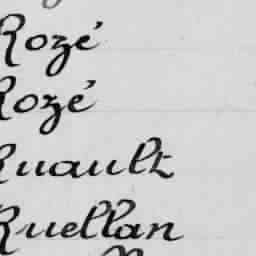 Rozé
Rozé
Ruault
Ruellan